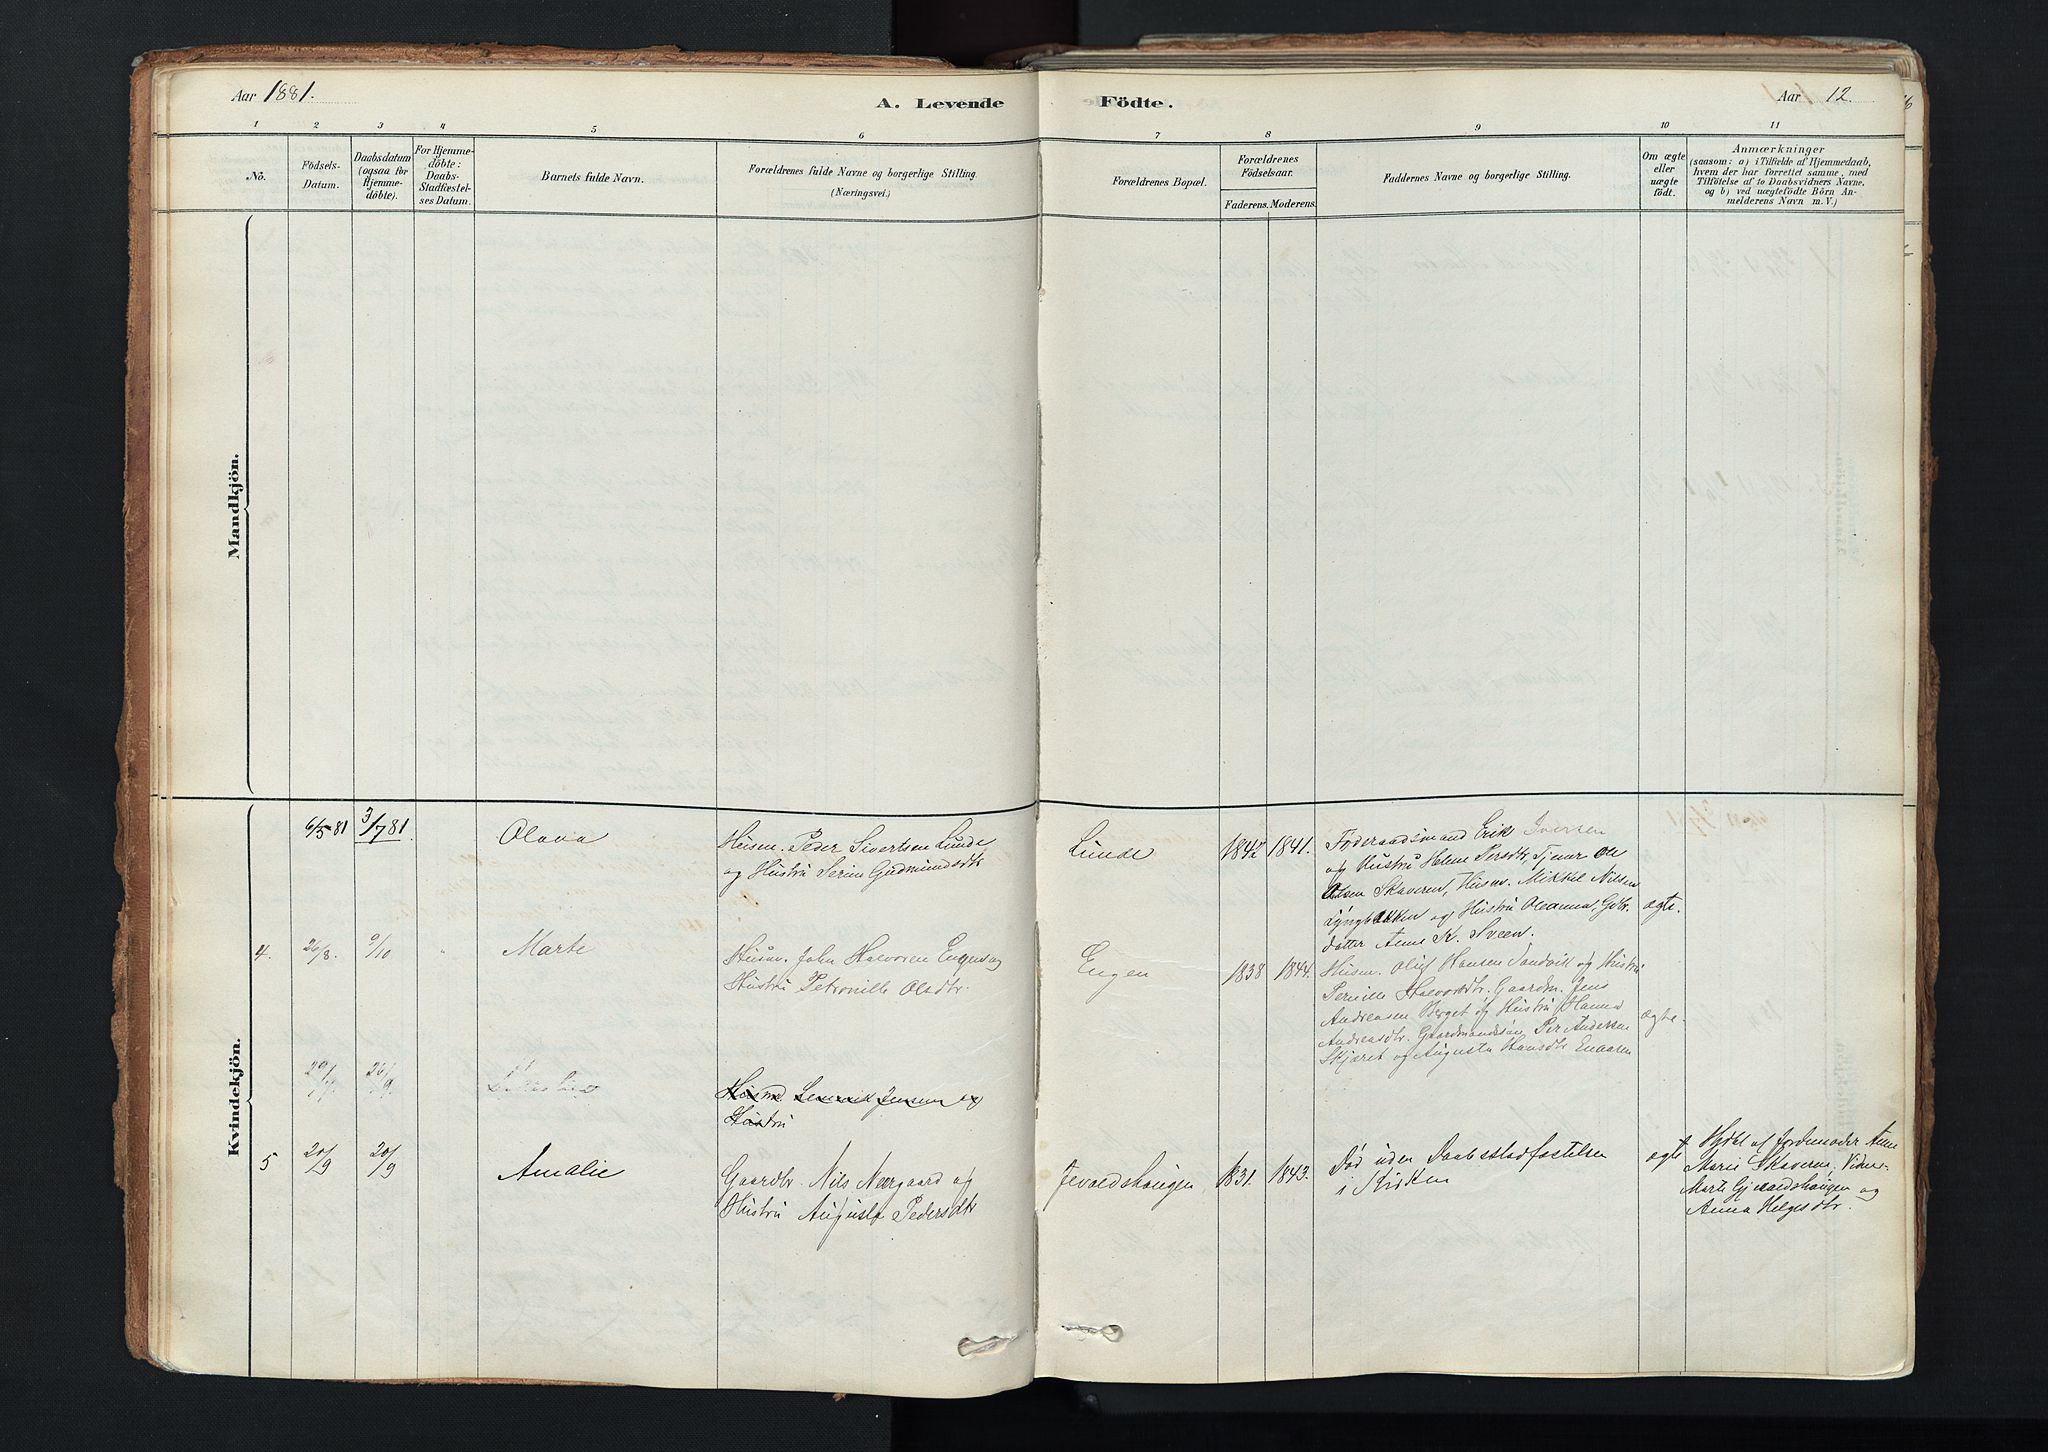 Aar 1881.
A. Levende Födte.
Aar 12.
1 2 3 4 5 6 7 8 9 10 11
No.
Födsels-
Datum.
Daabsdatum
(ogsaa for
Hjemme-
döbte).
For Hjemme-
döbte:
Daabs-
Stadfæstel-
ses Datum.
Barnets fulde Navn.
Forældrenes fulde Navne og borgerlige Stilling.
(Næringsvei.)
Forældrenes Bopæl.
Forældrenes
Födselsaar.
Faderens. Moderens.
Faddernes Navne og borgerlige Stilling.
Om ægte
eller
uægte
födt.
Anmærkninger
(saasom: a) i Tilfælde af Hjemmedaab,
hvem der har forrettet samme, med
Tilföielse af to Daabsvidners Navne,
og b) ved uægtefödte Börn An-
melderens Navn m. V.)
Mandkjön.
Kvindekjön.
6/5 81 3/7 81. Olava
Husm. Peder Sivertsen Lunde
og Hustru Serine Gudmundsdtr
Lunde 1842 1841.
Föderaadsmand Erik Iversen
og Hustru Helene Persdtr, Tjener Ole
Olsen Skaveren, Husm. Mikkel Nilsen
Lyngbakken og Hustru Oleanna, Gdbr.
datter Anne K. Sveen.
ægte.
4. 26/8. 9/10 " Marte
Husm. John Halvorsen Engen og
Hustru Petronille Olsdtr.
Engen 1838 1844.
Husm. Oluf Hansen Sandvik og Hustru
Pernille Halvorsdtr. Gaardm. Jens
Andreasen Berget og Hustru Hanna
Andreasdtr. Gaardmandssön Per Andersen
Skjæret og Augusta Hansdtr Enaaren
ægte.
Husmd Jensen og
Hustru
5 20/9 20/9 Amalie
Gaardbr. Nils Neergaard og
Hustru Augusta Pedersdtr
Jevaldshaugen 1831. 1843.
Död uden Daabsstadfæstelsen
i Kirken
ægte
Hjdbt af Jordemoder Anne
Marie Skaveren, Vidner
Marte Gjevaldshaugen og
Anna Helgesdtr.